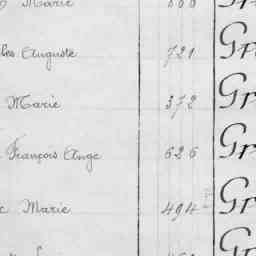 Marie
les Auguste 721 Gr
Marie 372 Gr
François Ange 626 Gr
Marie 494 Gr
Gr